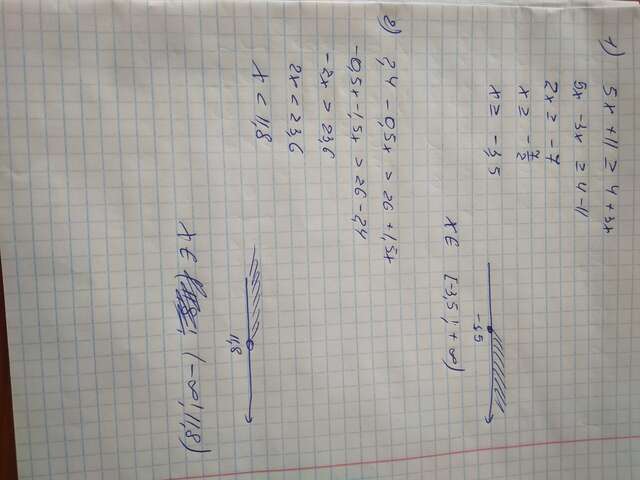 1) 5x + 11 ≥ 4 + 3x
5x - 3x ≥ 4 - 11
2x ≥ -7
x ≥ -7/2
x ≥ -3,5
-3,5
x ∈ [-3,5; +∞)
2) 2,4 - 0,5x > 26 + 1,5x
-0,5x - 1,5x > 26 - 2,4
-2x > 23,6
2x < 23,6
x < 11,8
11,8
x ∈ (-∞; 11,8)